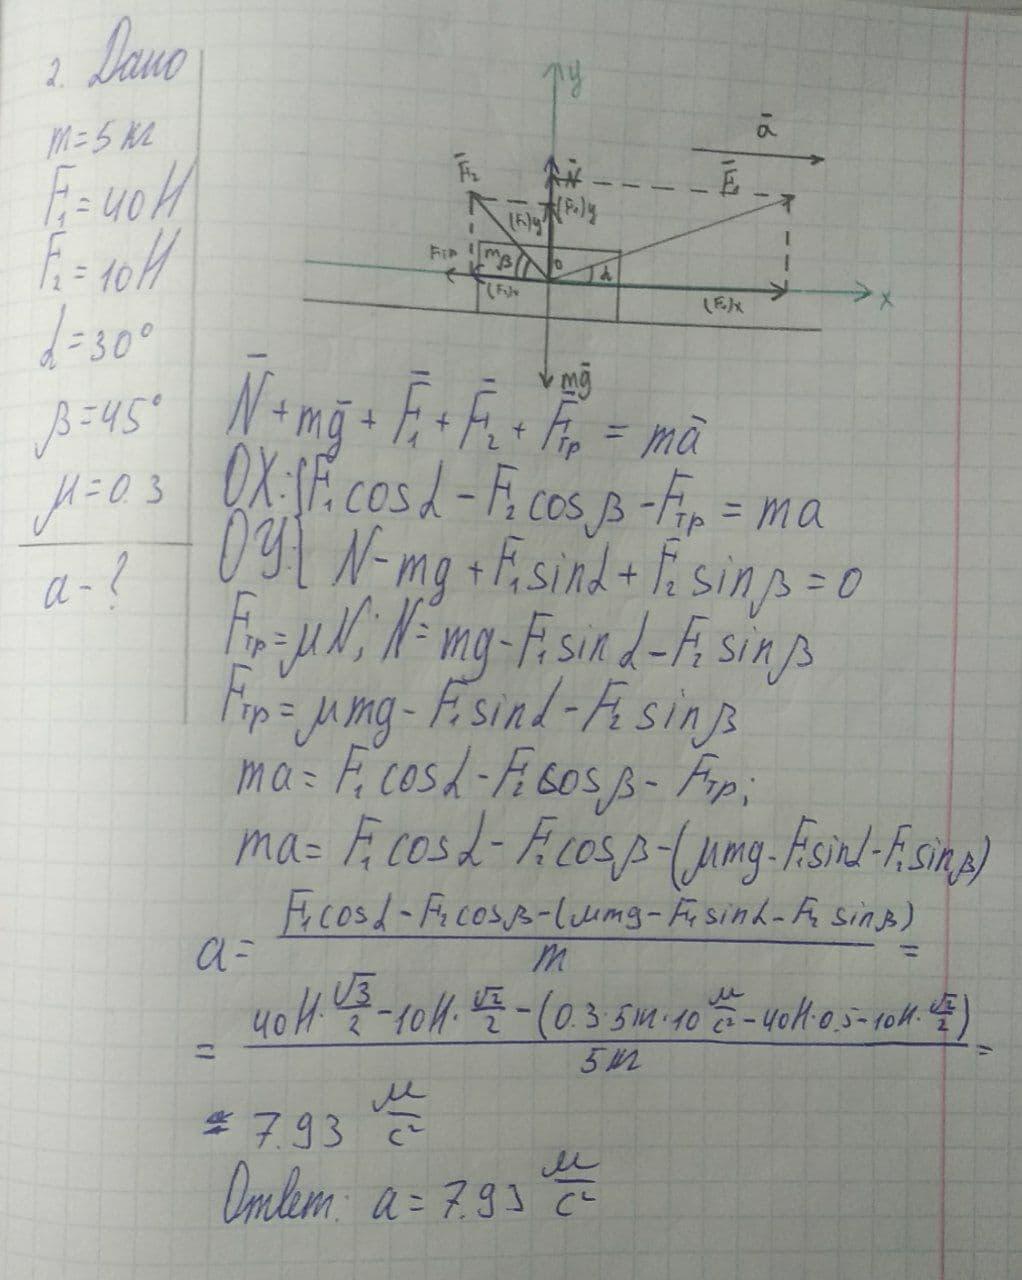 2. Дано
m=5 кг
F₁=40Н
F₂=10Н
α=30°
β=45°
μ=0.3
a-?
y
ā
F̄₂
N̄
F̄₁
(F₂)y
(F₁)y
Fтр
m
β
0
α
(F₂)x
(F₁)x
x
mḡ
N̄+mḡ+F̄₁+F̄₂+F̄тр=mā
OX:{F₁cosα-F₂cosβ-Fтр=ma
OY:{N-mg+F₁sinα+F₂sinβ=0
Fтр=μN; N=mg-F₁sinα-F₂sinβ
Fтр=μmg-F₁sinα-F₂sinβ
ma=F₁cosα-F₂cosβ-Fтр;
ma=F₁cosα-F₂cosβ-(μmg-F₁sinα-F₂sinβ)
a=(F₁cosα-F₂cosβ-(μmg-F₁sinα-F₂sinβ))/m=
=(40Н·√3/2-10Н·√2/2-(0.3·5кг·10 м/с²-40Н·0,5-10Н·√2/2))/5кг=
= 7.93 м/с²
Ответ: a=7.93 м/с²